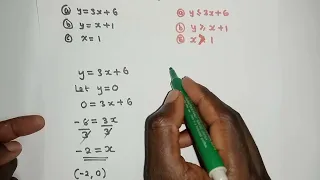 (a) y = 3x + 6
(b) y = x + 1
(c) x = 1
(a) y ≤ 3x + 6
(b) y ≥ x + 1
y = 3x + 6
Let y = 0
0 = 3x + 6
-6/3 = 3x/3
-2 = x
(-2, 0)